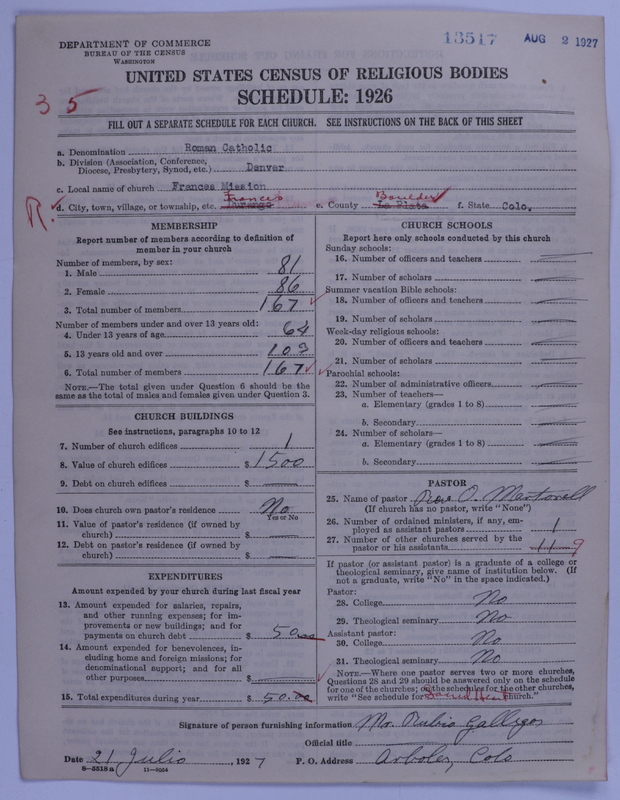 13517 AUG 2 1927
DEPARTMENT OF COMMERCE
BUREAU OF THE CENSUS
WASHINGTON
UNITED STATES CENSUS OF RELIGIOUS BODIES
SCHEDULE: 1926
35
FILL OUT A SEPARATE SCHEDULE FOR EACH CHURCH. SEE INSTRUCTIONS ON THE BACK OF THIS SHEET
a. Denomination Roman Catholic
b. Division (Association, Conference, Diocese, Presbytery, Synod, etc.) Denver
c. Local name of church Frances Mission
R. Frances Boulder
d. City, town, village, or township, etc. Durango e. County La Plata f. State Colo.
MEMBERSHIP
Report number of members according to definition of member in your church
Number of members, by sex:
1. Male 81
2. Female 86
3. Total number of members 167
Number of members under and over 13 years old:
4. Under 13 years of age 64
5. 13 years old and over 103
6. Total number of members 167
NOTE.—The total given under Question 6 should be the same as the total of males and females given under Question 3.
CHURCH BUILDINGS
See instructions, paragraphs 10 to 12
7. Number of church edifices 1
8. Value of church edifices $ 1500
9. Debt on church edifices $
10. Does church own pastor's residence? No
Yes or No
11. Value of pastor's residence (if owned by church) $
12. Debt on pastor's residence (if owned by church) $
EXPENDITURES
Amount expended by your church during last fiscal year
13. Amount expended for salaries, repairs, and other running expenses; for improvements or new buildings; and for payments on church debt $ 50.00
14. Amount expended for benevolences, including home and foreign missions; for denominational support; and for all other purposes $
15. Total expenditures during year $ 50.00
CHURCH SCHOOLS
Report here only schools conducted by this church
Sunday schools:
16. Number of officers and teachers
17. Number of scholars
Summer vacation Bible schools:
18. Number of officers and teachers
19. Number of scholars
Week-day religious schools:
20. Number of officers and teachers
21. Number of scholars
Parochial schools:
22. Number of administrative officers
23. Number of teachers—
a. Elementary (grades 1 to 8)
b. Secondary
24. Number of scholars—
a. Elementary (grades 1 to 8)
b. Secondary
PASTOR
25. Name of pastor Rev. O. Martorell
(If church has no pastor, write "None")
26. Number of ordained ministers, if any, employed as assistant pastors 1
27. Number of other churches served by the pastor or his assistants 11 9
If pastor (or assistant pastor) is a graduate of a college or theological seminary, give name of institution below. (If not a graduate, write "No" in the space indicated.)
Pastor:
28. College No
29. Theological seminary No
Assistant pastor:
30. College No
31. Theological seminary No
NOTE.—Where one pastor serves two or more churches, Questions 28 and 29 should be answered only on the schedule for one of the churches; on the schedules for the other churches, write "See schedule for Sacred Heart church."
Signature of person furnishing information Mr. Rubio Gallegos
Official title
Date 21 Julio, 1927 P. O. Address Arboles, Colo
8—5518a 11—9054